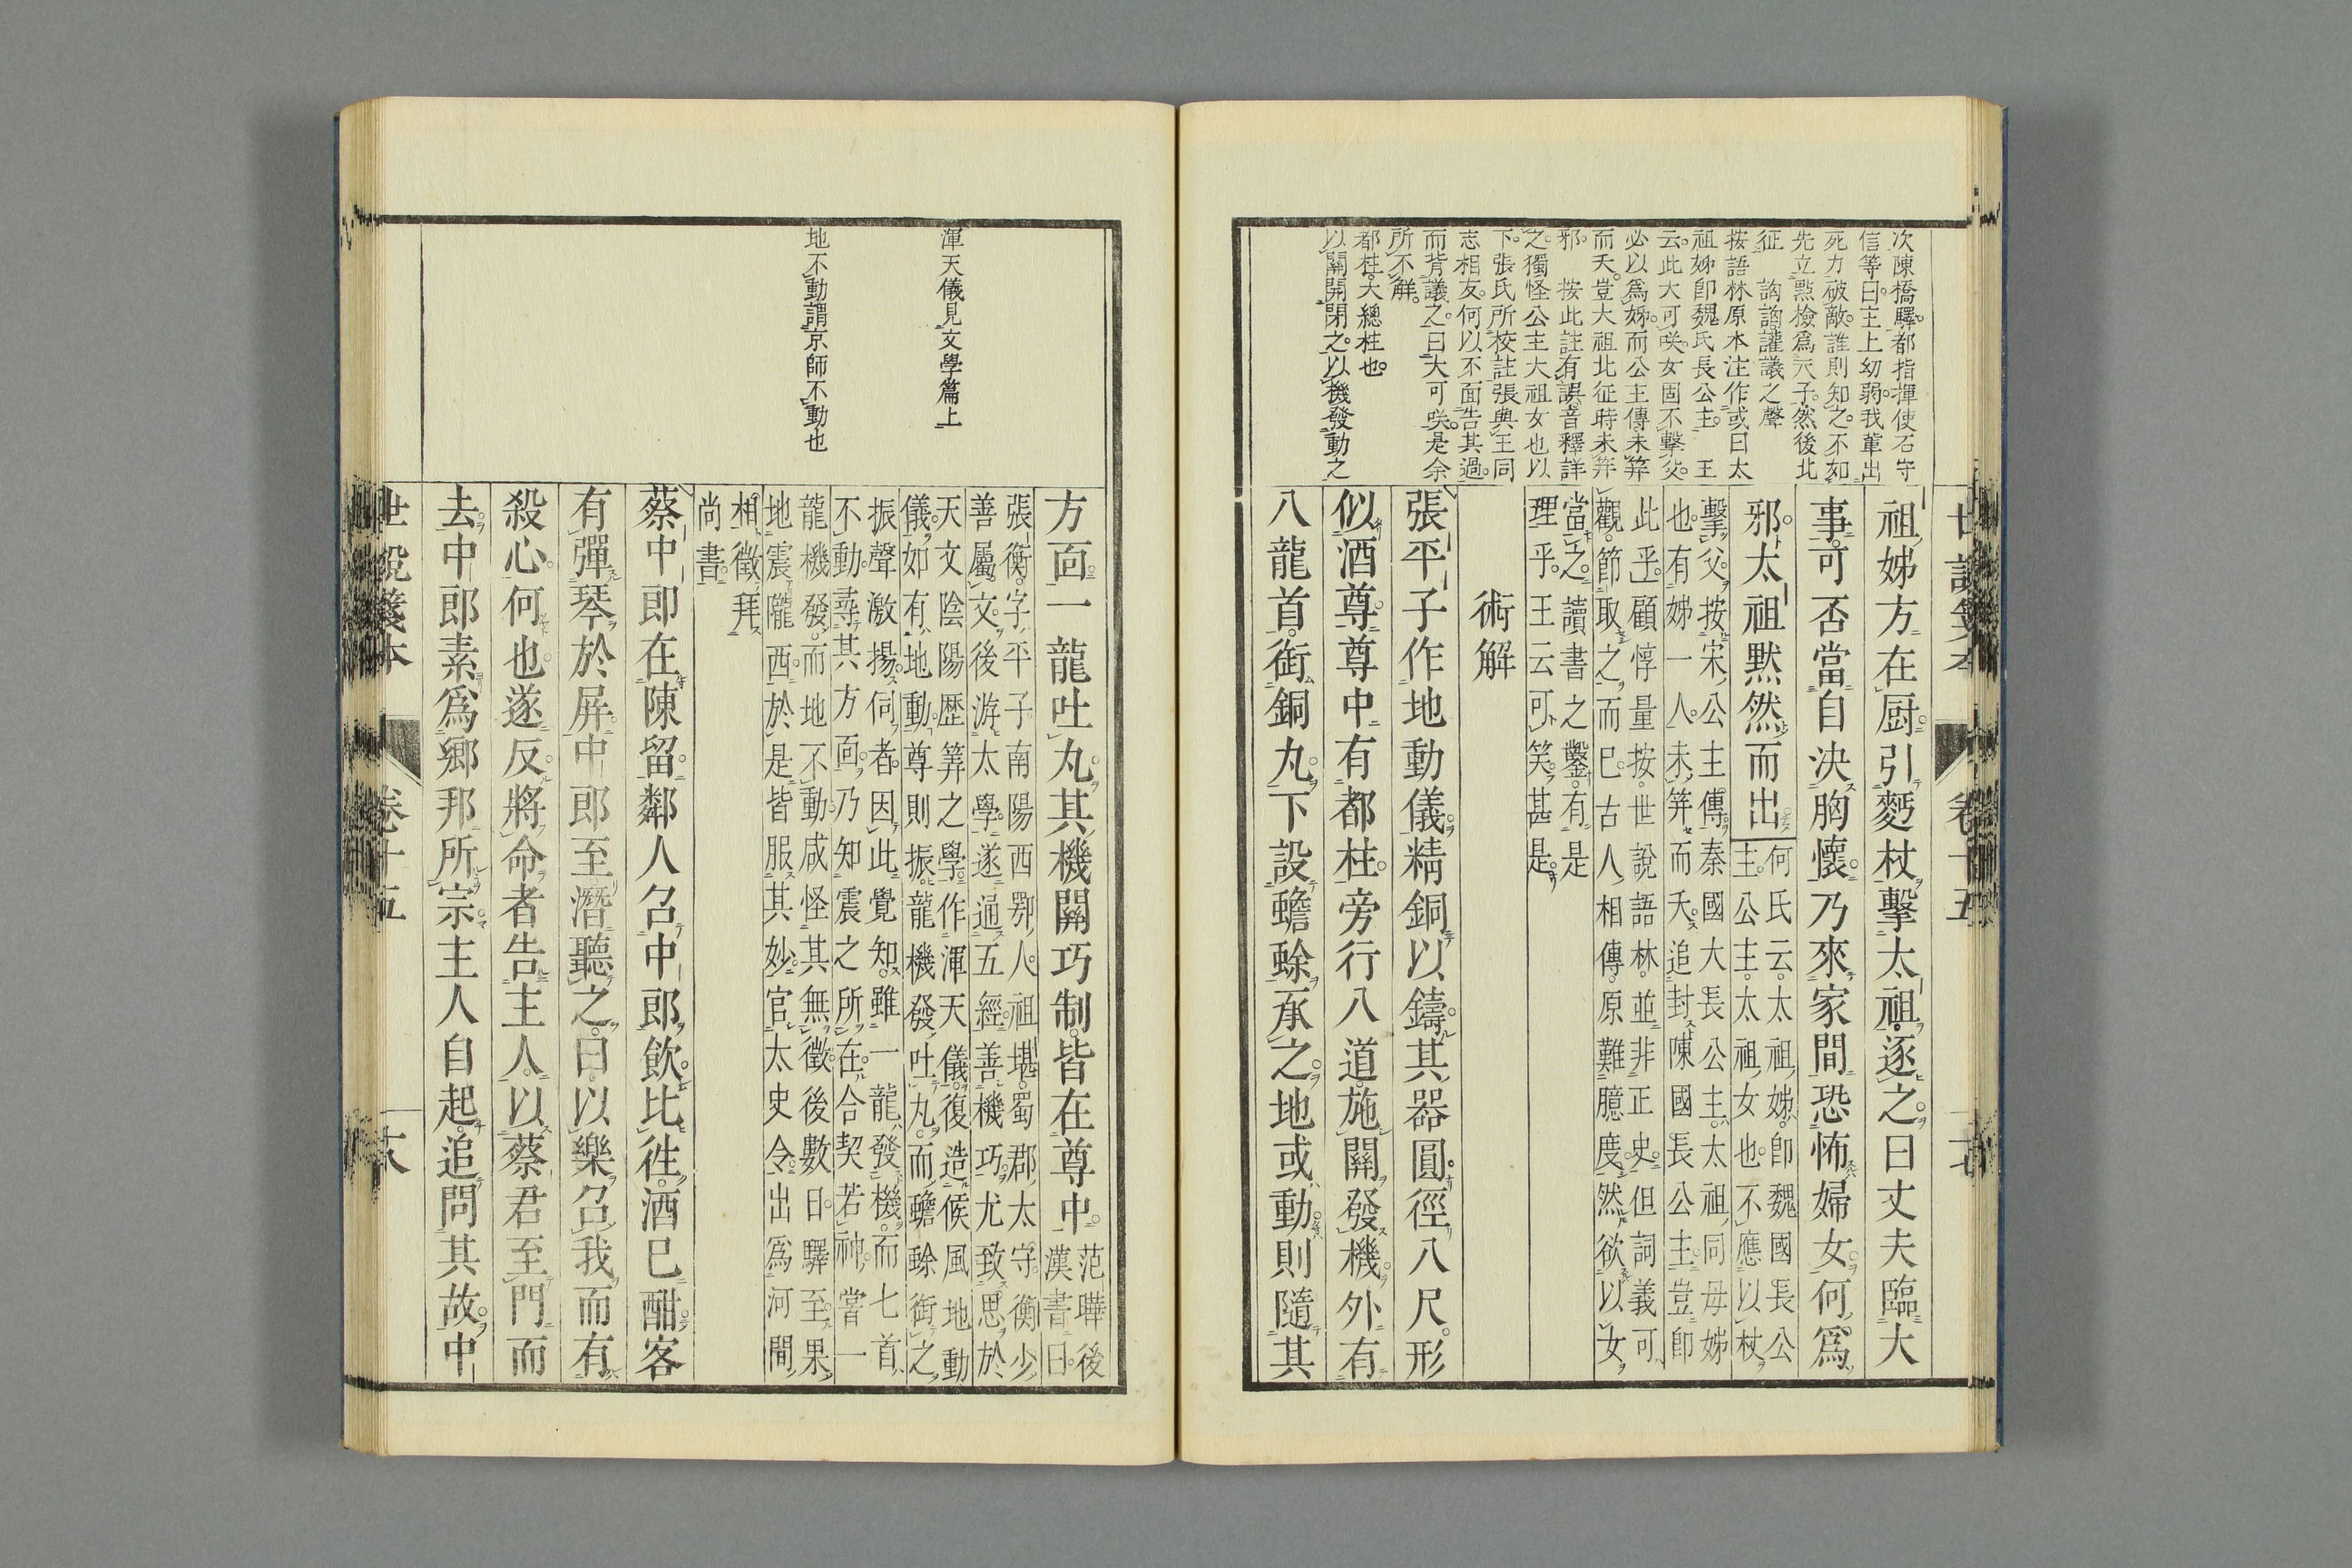 次陳橋驛都指揮使石守
信等曰主上幼弱我輩出
死力破敵誰則知之不如
先立㸃檢爲天子然後北
征　詢詢讙議之聲
按語林原本注作或曰太
祖姊卽魏氏長公主　王
云此大可咲女固不擊父
必以爲姊而公主傳未筓
而夭豈大祖北征時未筓
邪　按此註有誤音釋詳
之獨怪公主大祖女也以
下張氏所校註張與王同
志相友何以不面告其過
而背議之曰大可咲是余
所不解
都柱大總柱也
以關開閉之以機發動之
世說箋本
卷十五
祖姊方在厨引麪杖擊太祖逐之曰丈夫臨大
事可否當自決胸懷乃來家間恐怖婦女何爲
邪太祖黙然而出
何氏云太祖姊卽魏國長公
主公主太祖女也不應以杖
擊父按宋公主傳秦國大長公主太祖同母姊
也有姊一人未筓而夭追封陳國長公主豈卽
此乎顧惇量按世說語林並非正史但詞義可
觀節取之而已古人相傳原難臆度然欲以女
當之讀書之鑿有是
理乎王云可笑甚是
術解
張平子作地動儀精銅以鑄其器圓徑八尺形
似酒尊尊中有都柱旁行八道施關發機外有
八龍首銜銅丸下設蟾蜍承之地或動則隨其
渾天儀見文學篇上
地不動謂京師不動也
方面一龍吐丸其機關巧制皆在尊中
范曄後
漢書曰
張衡字平子南陽西鄂人祖堪蜀郡太守衡少
善屬文後游太學遂通五經善機巧尤致思於
天文陰陽歴筭之學作渾天儀復造候風地動
儀如有地動尊則振龍機發吐丸而蟾蜍銜之
振聲激揚伺者因此覺知雖一龍發機而七首
不動尋其方面乃知震之所在合契若神嘗一
龍機發而地不動咸怪其無徵後數日驛至果
地震隴西於是皆服其妙官太史令出爲河間
相徵拜
尚書
蔡中郎在陳留鄰人召中郎飮比徃酒已酣客
有彈琴於屏中郎至潛聽之曰以樂召我而有
殺心何也遂反將命者告主人以蔡君至門而
去中郎素爲鄉邦所宗主人自起追問其故中
世說箋本
卷十五
十八